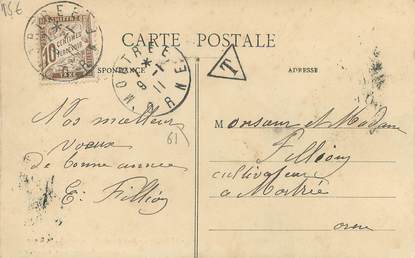 15€
CARTE POSTALE
CHIFFRE
10 CENTIMES
À PERCEVOIR
TAXE
MORTRÉE
ORNE
T
SPONDANCE
ADRESSE
Nos meilleurs
voeux
de bonne année
E. Fillion
61
Monsieur et Madame
Fillion
cultivateur
à Mortrée
orne